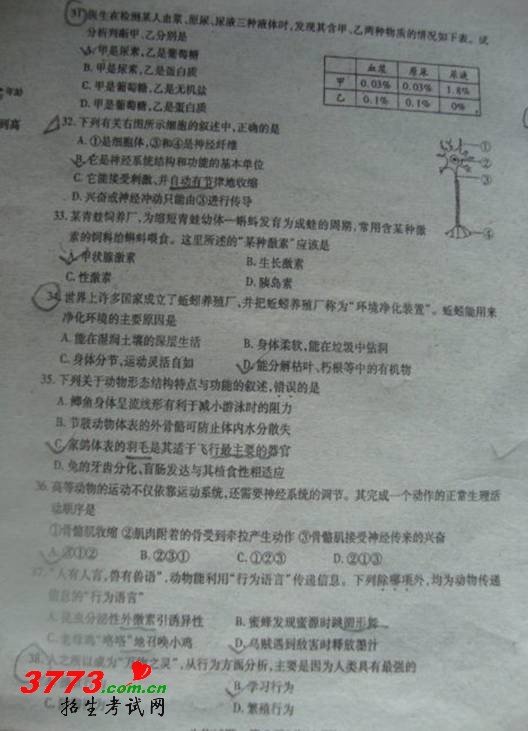 31.医生在检测某人血浆、原尿、尿液三种液体时,发现其含甲、乙两种物质的情况如下表。试
分析判断甲、乙分别是
A.甲是尿素,乙是葡萄糖
B.甲是尿素,乙是蛋白质
C.甲是葡萄糖,乙是无机盐
D.甲是葡萄糖,乙是蛋白质
血浆 原尿 尿液
甲 0.03% 0.03% 1.8%
乙 0.1% 0.1% 0%
32.下列有关右图所示细胞的叙述中,正确的是
A.①是细胞体,③和④是神经纤维
B.它是神经系统结构和功能的基本单位
C.它能接受刺激,并自动有节律地收缩
D.兴奋或神经冲动只能由③进行传导
① ② ③ ④
33.某青蛙饲养厂,为缩短青蛙幼体—蝌蚪发育为成蛙的周期,常用含某种激
素的饲料给蝌蚪喂食。这里所述的“某种激素”应该是
A.甲状腺激素 B.生长激素
C.性激素 D.胰岛素
34.世界上许多国家成立了蚯蚓养殖厂,并把蚯蚓养殖厂称为“环境净化装置”。蚯蚓能用来
净化环境的主要原因是
A.能在湿润土壤的深层生活 B.身体柔软,能在垃圾中钻洞
C.身体分节,运动灵活自如 D.能分解枯叶、朽根等中的有机物
35.下列关于动物形态结构特点与功能的叙述,错误的是
A.鲫鱼身体呈流线形有利于减小游泳时的阻力
B.节肢动物体表的外骨骼可防止体内水分散失
C.家鸽体表的羽毛是其适于飞行最主要的器官
D.兔的牙齿分化,盲肠发达与其植食性相适应
36.高等动物的运动不仅依靠运动系统,还需要神经系统的调节。其完成一个动作的正常生理活
动顺序是
①骨骼肌收缩 ②肌肉附着的骨受到牵拉产生动作 ③骨骼肌接受神经传来的兴奋
A.③①② B.②③① C.①②③ D.②①③
37.“人有人言,兽有兽语”,动物能利用“行为语言”传递信息。下列除哪项外,均为动物传递
信息的“行为语言”
A.昆虫分泌性外激素引诱异性 B.蜜蜂发现蜜源时跳圆形舞
C.老母鸡“咯咯”地召唤小鸡 D.乌贼遇到敌害时释放墨汁
38.人之所以成为“万物之灵”,从行为方面分析,主要是因为人类具有最强的
B.学习行为
C. D.繁殖行为
3773.com.cn
招生考试网
到高